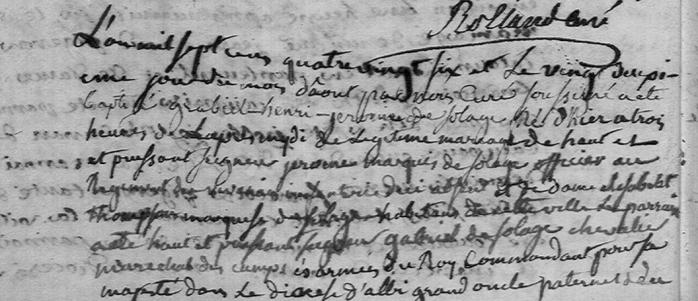 Rolland curé
L'an mil sept cens quatre vingt six et le vingt deuxi
eme jour du mois d'août par nous curé soussigné a été
baptisé gabriel-henri-jerome de solage né d'hier a trois
heures de l'après midi de legitime mariage de haut et
et puissant seigneur jerome marquis de solage officier au
Regiment du infanterie et de Dame elisabet
thompson marquise de solage habitans de cette ville le parrain
a été haut et puissant seigneur gabriel de solage chevalie
marechal des camps es armées du Roy Commandant pour sa
majesté dans Le diocèse d'albi grand oncle paternel du